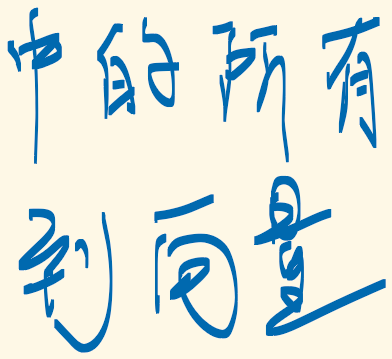 中的所有
到向量